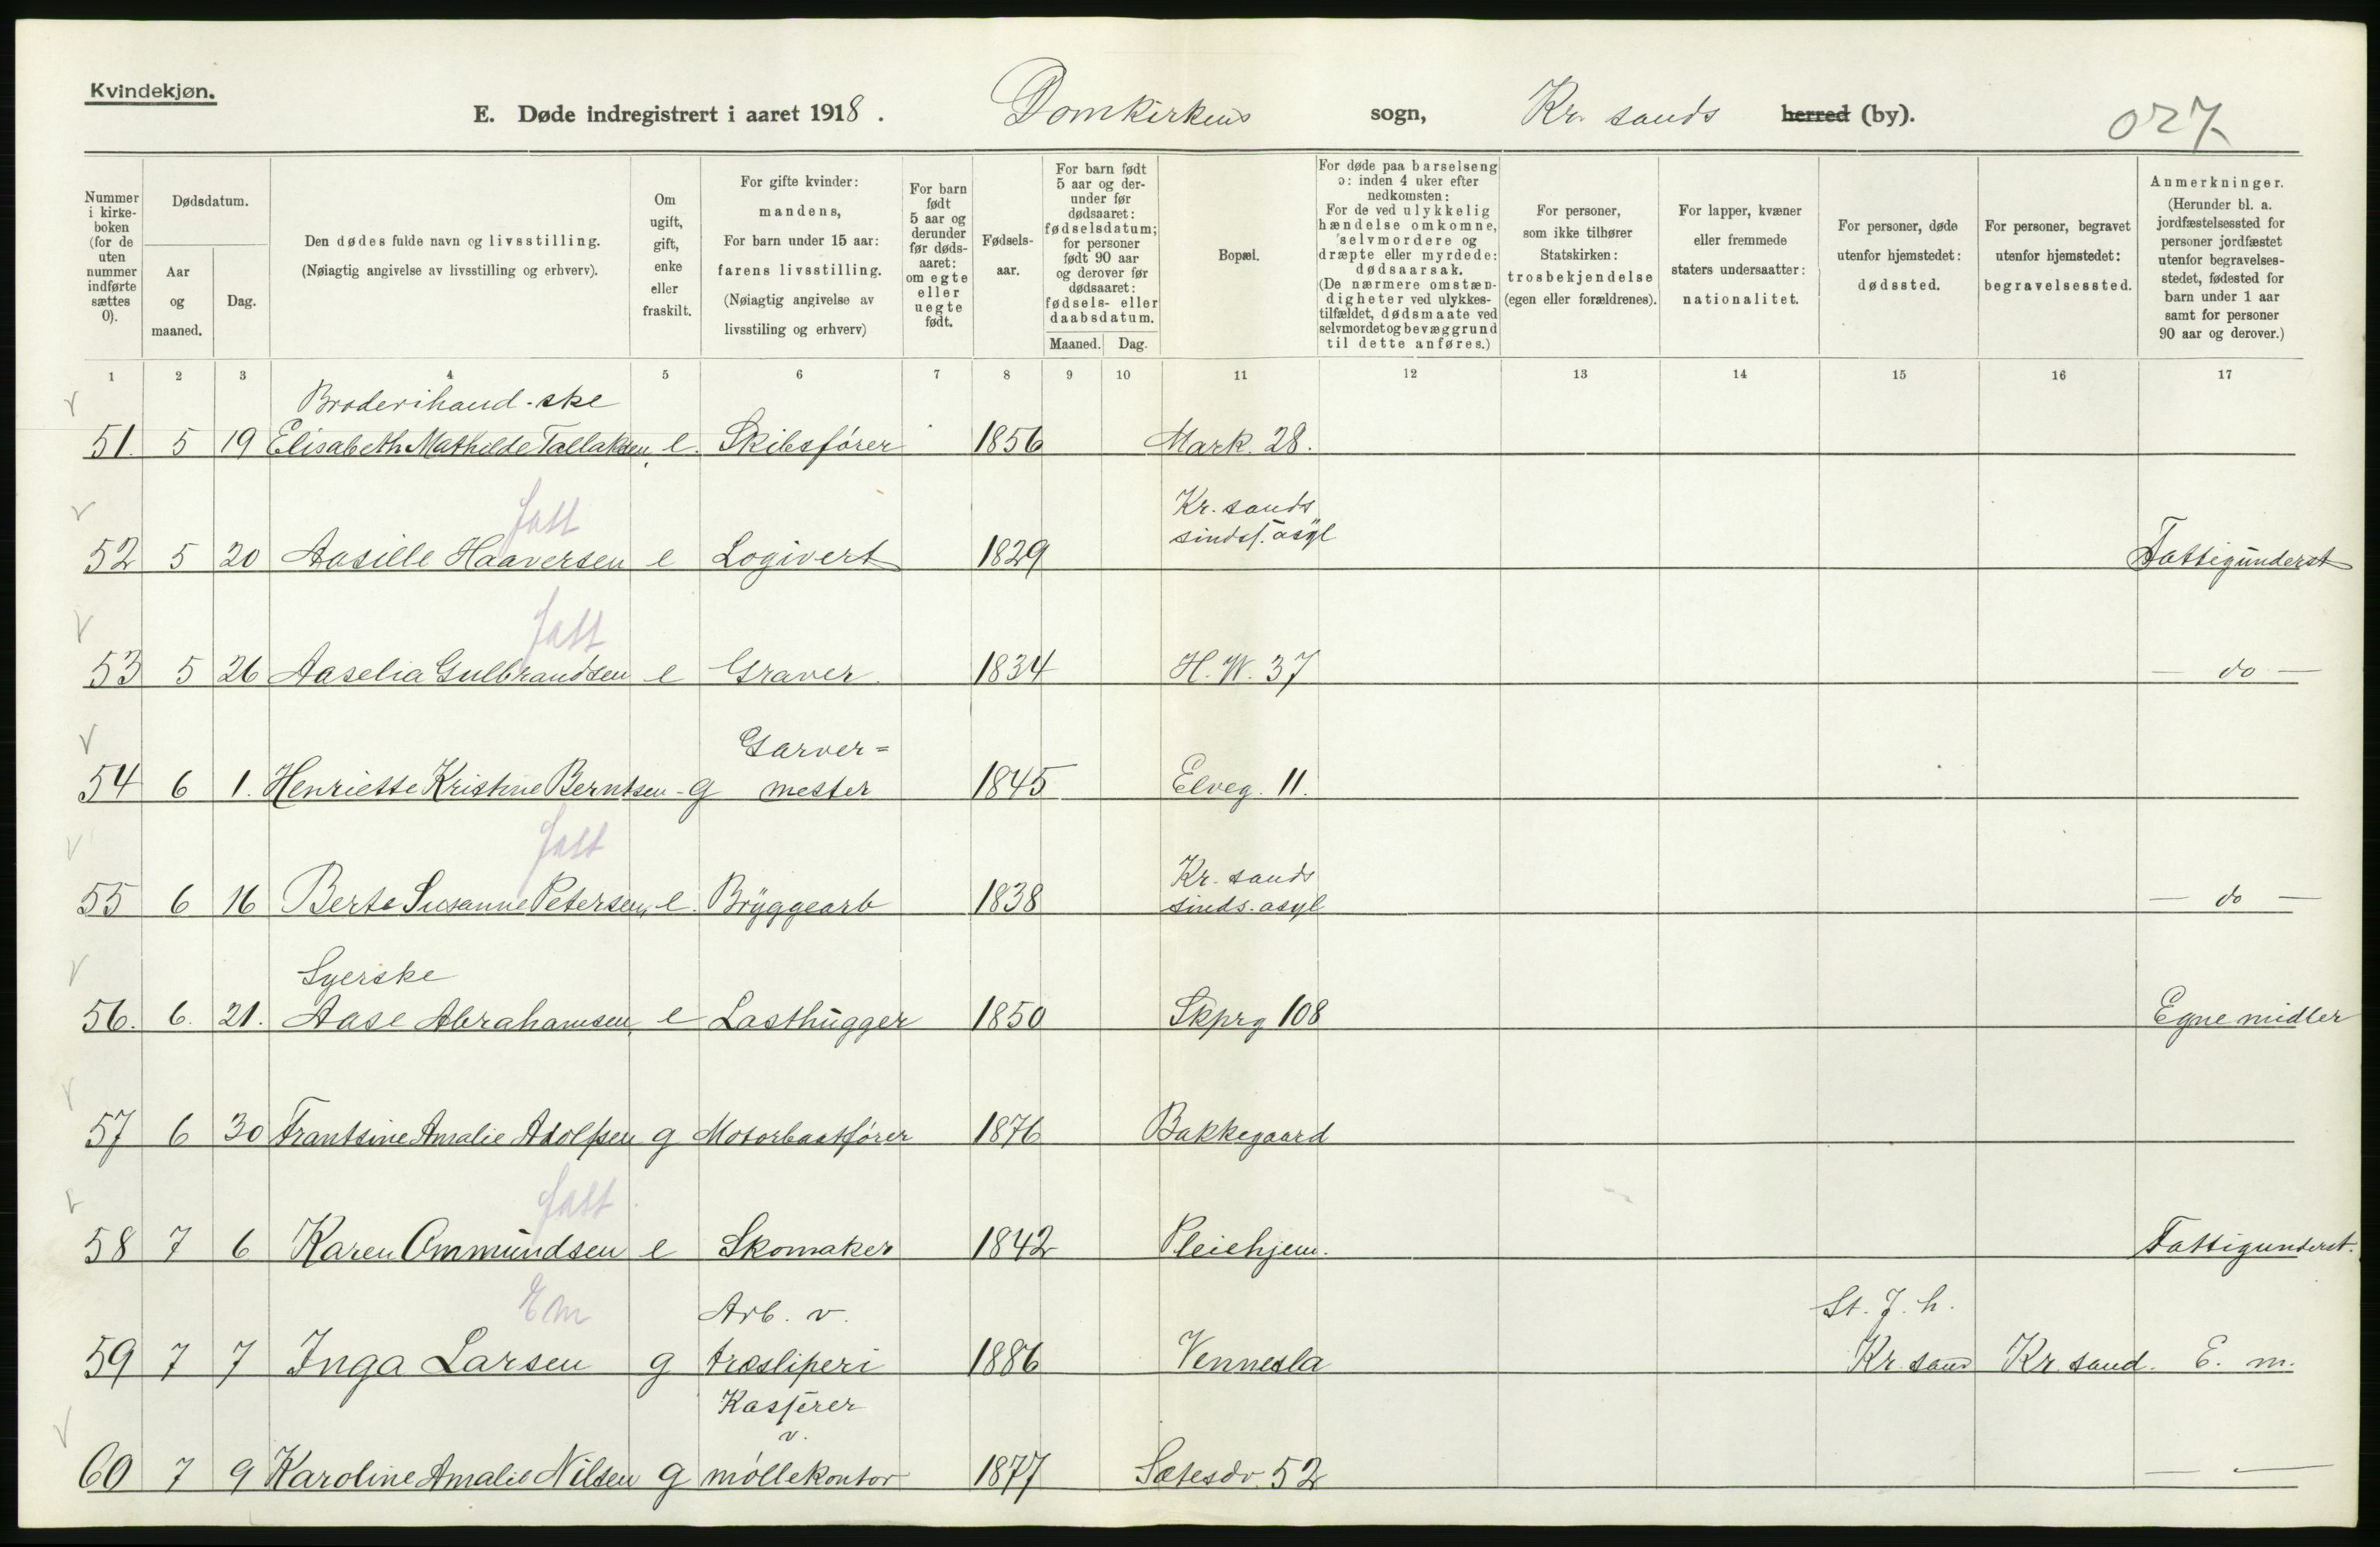 Kvindekjøn.
E. Døde indregistrert i aaret 1918. Domkirkens sogn, Kr. sands herred (by). 027
Nummer i kirke- boken (for de uten nummer indførte sættes 0).
Dødsdatum.
Aar og maaned.
Dag.
Den dødes fulde navn og livsstilling.
(Nøiagtig angivelse av livsstilling og erhverv).
Om ugift, gift, enke eller fraskilt.
For gifte kvinder: mandens, For barn under 15 aar: farens livsstilling. (Nøiagtig angivelse av livsstiling og erhverv)
For barn født 5 aar og derunder før døds- aaret: om egte eller uegte født.
Fødsels- aar.
For barn født 5 aar og der- under før dødsaaret: fødselsdatum; for personer født 90 aar og derover før dødsaaret: fødsels- eller daabsdatum.
Maaned. Dag.
Bopæl.
For døde paa barselseng ɔ: inden 4 uker efter nedkomsten: For de ved ulykkelig hændelse omkomne, selvmordere og dræpte eller myrdede: dødsaarsak. (De nærmere omstæn- digheter ved ulykkes- tilfældet, dødsmaate ved selvmordet og bevæggrund til dette anføres.)
For personer, som ikke tilhører Statskirken: trosbekjendelse (egen eller forældrenes).
For lapper, kvæner eller fremmede staters undersaatter: nationalitet.
For personer, døde utenfor hjemstedet: dødssted.
For personer, begravet utenfor hjemstedet: begravelsessted.
Anmerkninger. (Herunder bl. a. jordfæstelsessted for personer jordfæstet utenfor begravelses- stedet, fødested for barn under 1 aar samt for personer 90 aar og derover.)
1 2 3 4 5 6 7 8 9 10 11 12 13 14 15 16 17
Broderihand-ske
51. 5 19 Elisabeth Mathilde Tallaksen, e. Skibsfører 1856 Mark. 28.
fatt Kr. sands
sindsf. asyl
52 5 20 Aasille Haaversen e Logivert 1829 Fattigunderst
fatt
53 5 26 Aaselia Gulbrandsen e Graver. 1834 H. W. 37 — do —
Garver=
54 6 1. Henriette Kristine Berntsen - g mester 1845 Elveg. 11.
fatt Kr. sands
55 6 16 Berte Susanne Petersen, e. Bryggearb 1838 sinds. asyl — do —
Syerske
56. 6. 21. Aase Abrahamsen, e Lasthugger 1850 Skprg 108 Egne midler
57 6 30 Frantsine Amalie Adolfsen g Motorbaatfører 1876 Bakkegaard
fatt
58 7 6 Karen Ommundsen e Skomaker 1842 Pleiehjem. Fattigunderst.
Em Arb. v. St. J. h.
59 7 7 Inga Larsen g træsliperi 1886 Vennesla Kr. sand Kr. sand. E. m.
Kasserer
v.
60 7 9 Karoline Amalie Nilsen g møllekontor 1877 Sætesdv. 52 — —